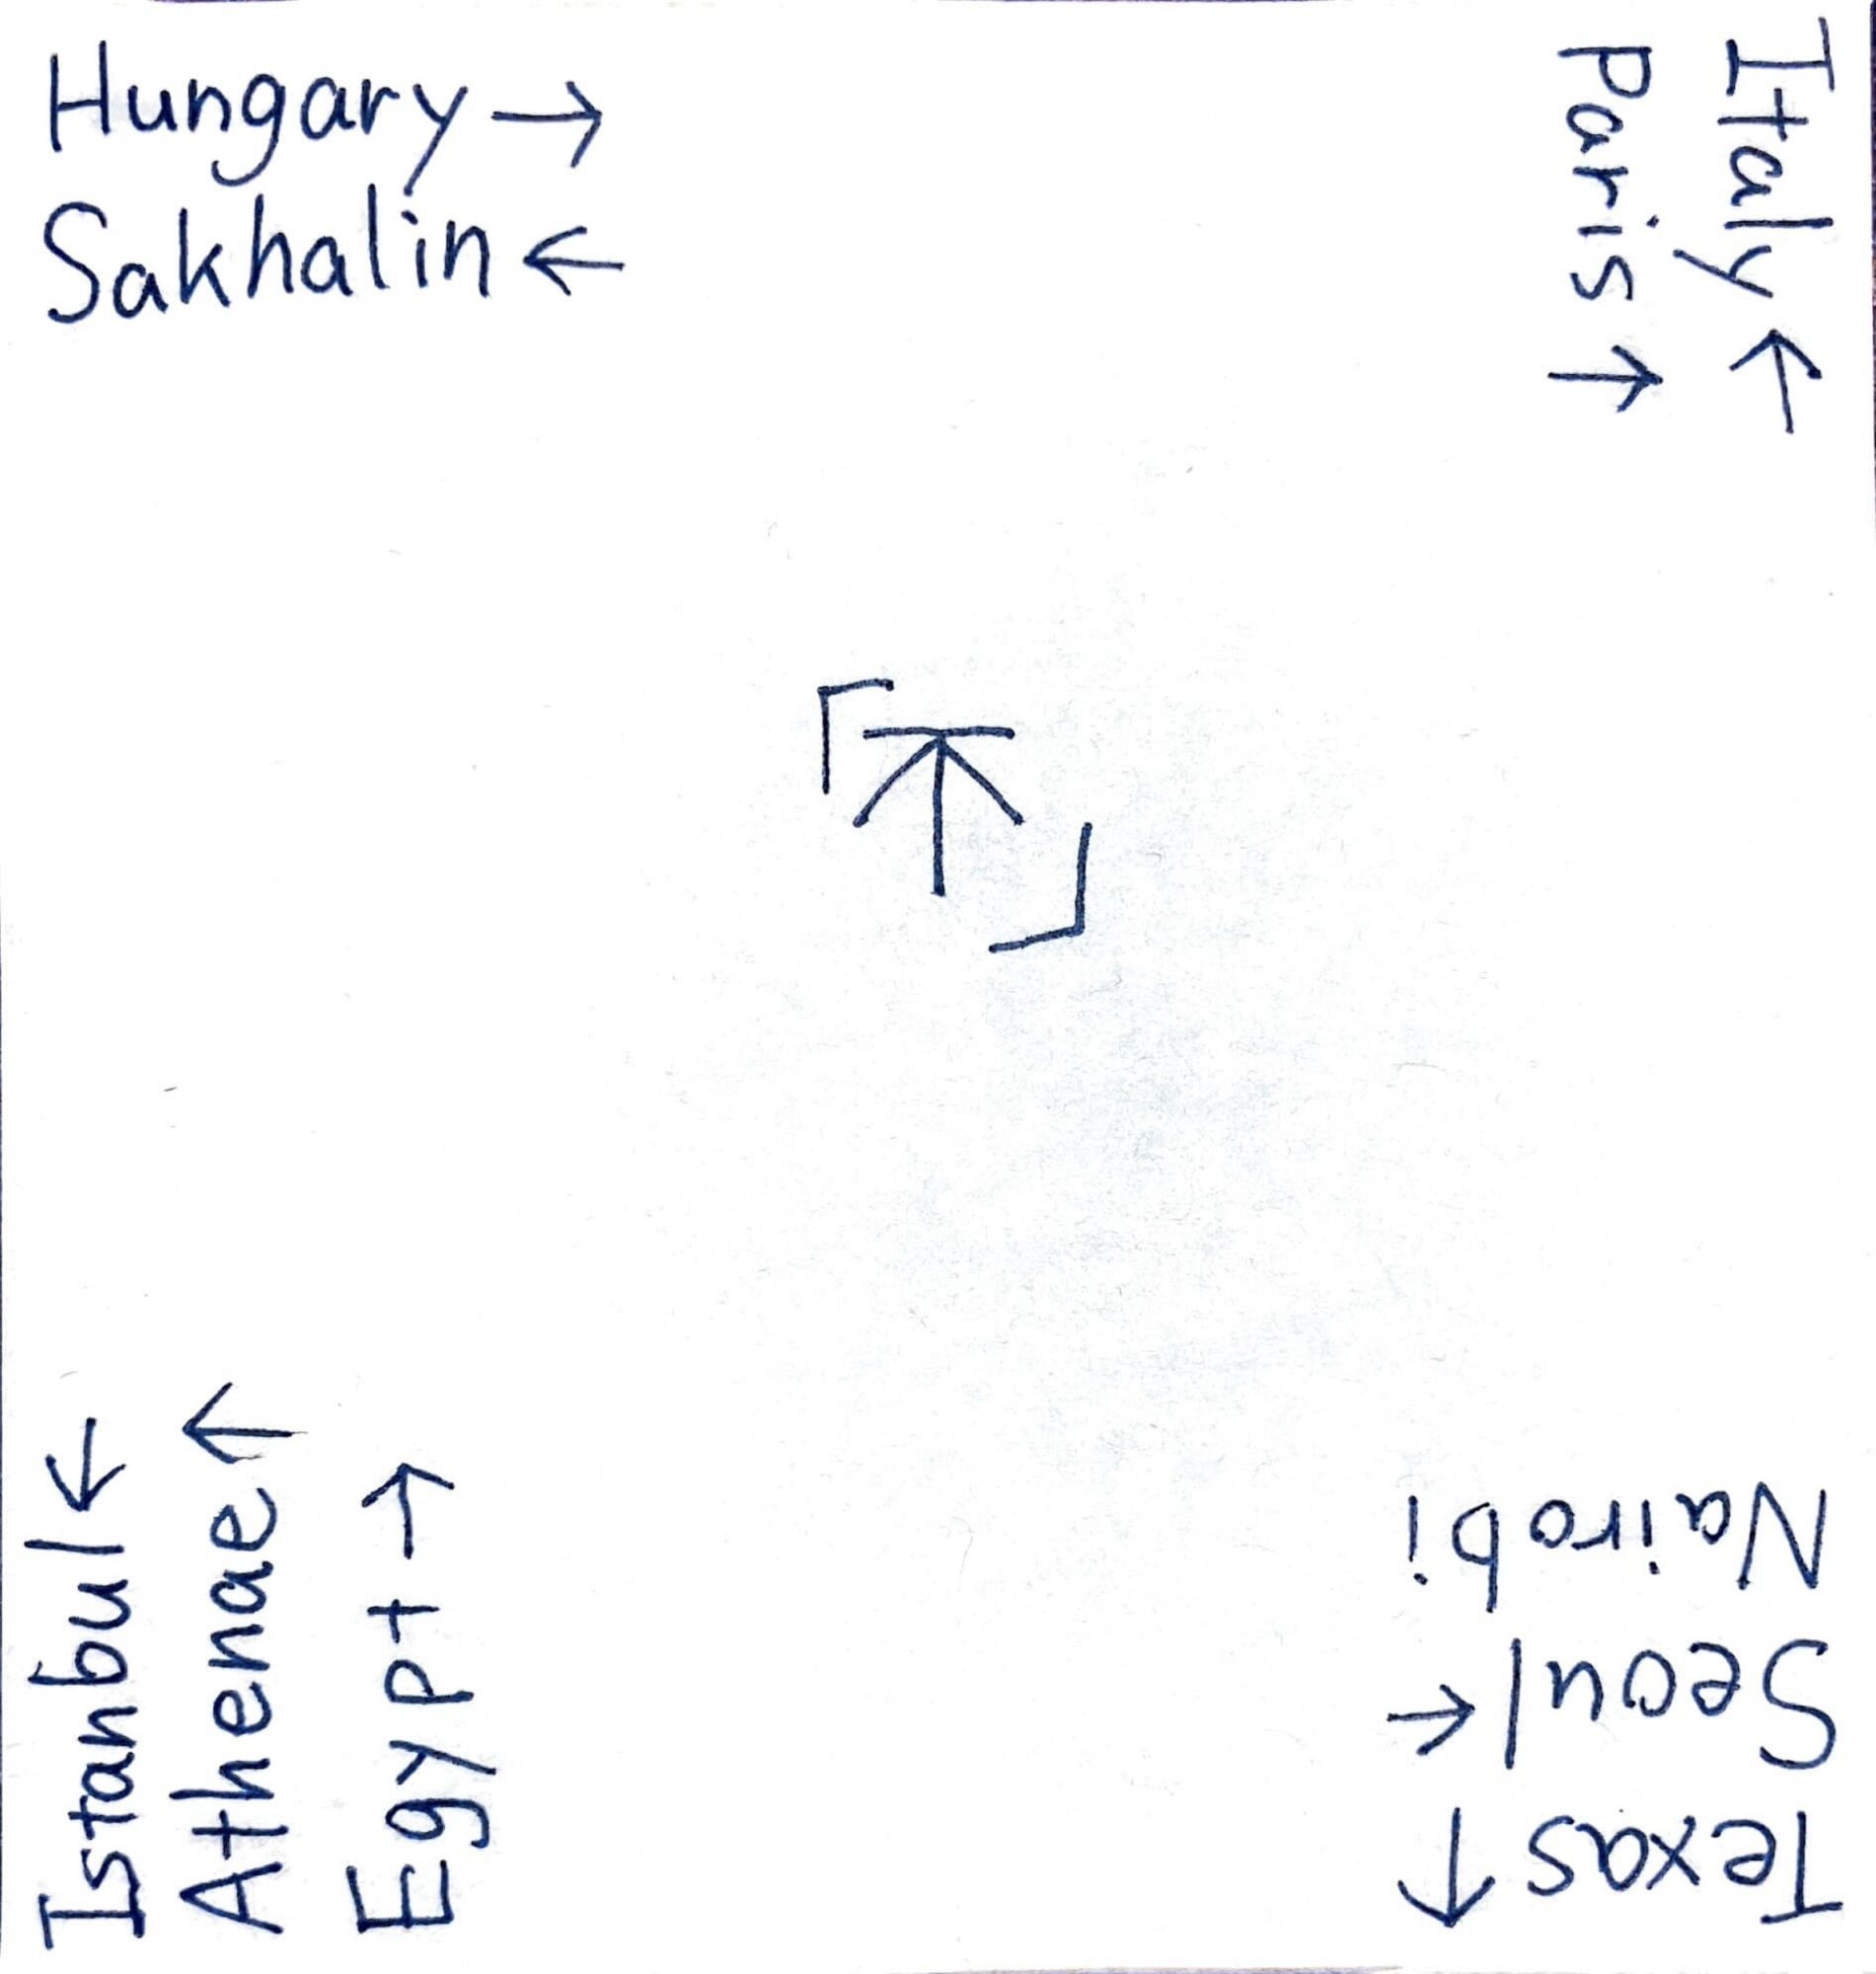 Hungary →
Sakhalin ←
Italy ←
Paris ↑
「不」
Istanbul ←
Athenae ↑
Egypt →
Texas ↑
Seoul ←
Nairobi